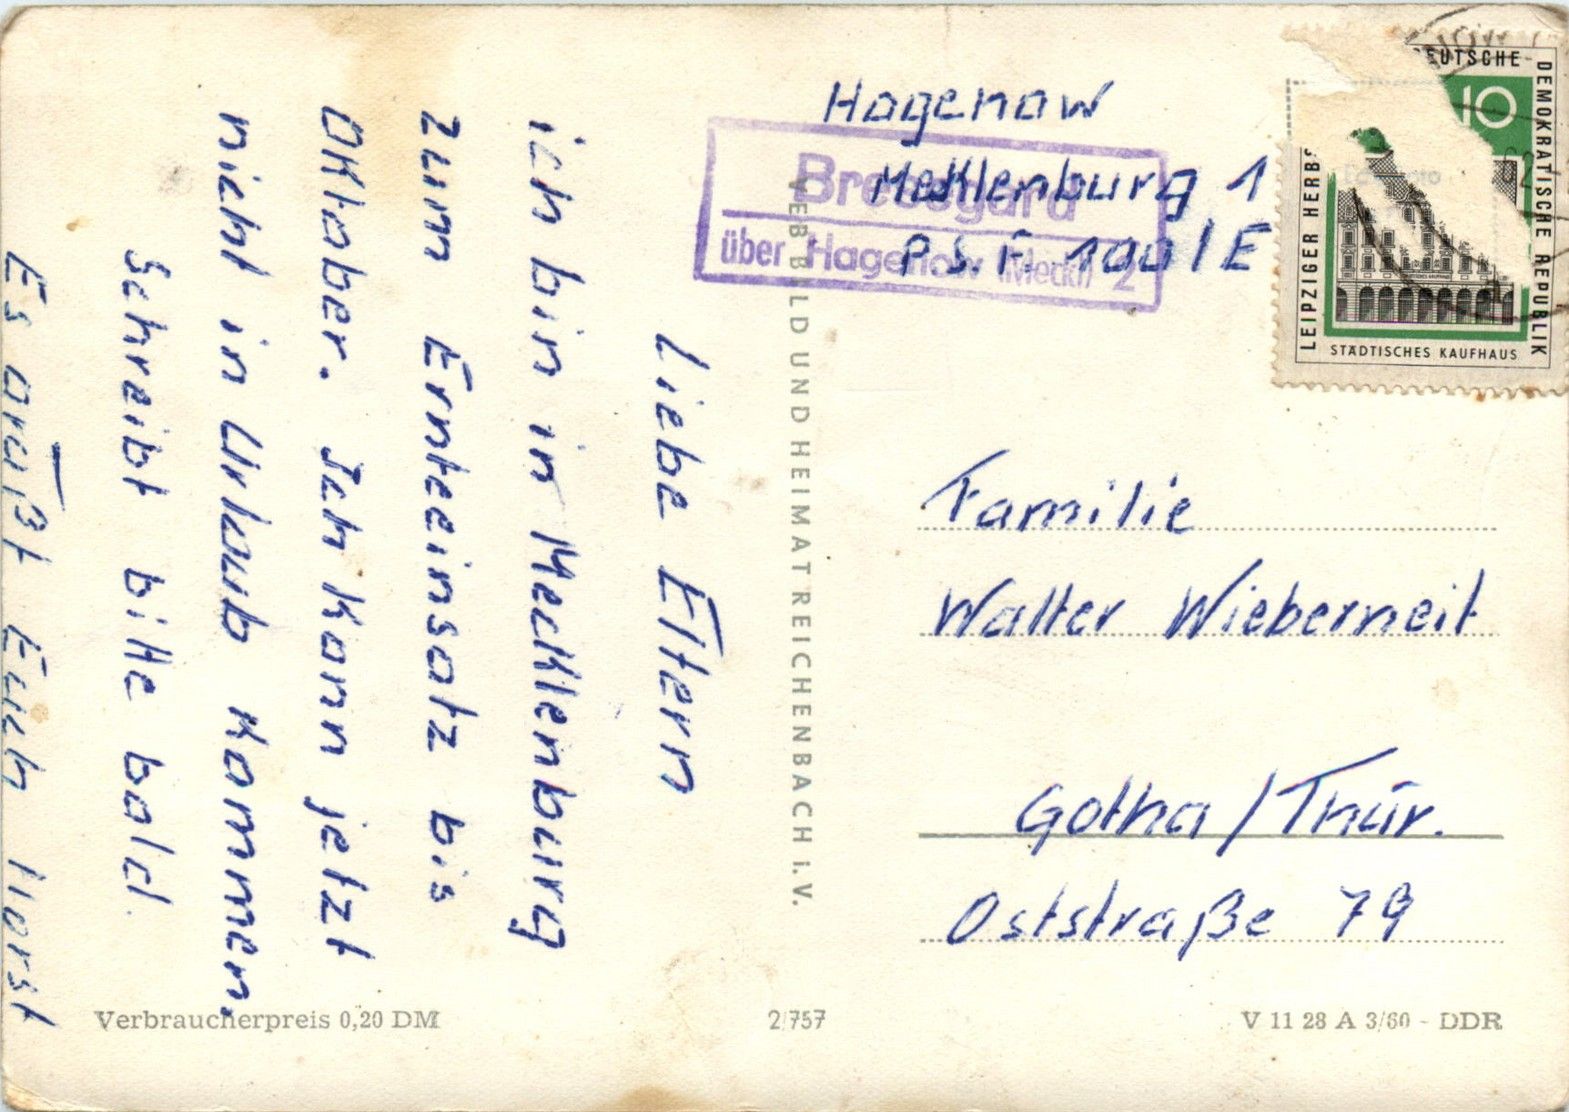 Liebe Eltern
ich bin in Mecklenburg
zum Ernteeinsatz bis
Oktober. Ich Kann jetzt
nicht in Urlaub Kommen.
Schreibt bitte bald.
Es grüßt Euch Horst
VEB BILD UND HEIMAT REICHENBACH I. V.
Hagenow
Meklenburg 1
P.S.F. 100/E
über Hagenow (Meckl) 2
DEUTSCHE
DEMOKRATISCHE REPUBLIK
10
LEIPZIGER HERBS
STÄDTISCHES KAUFHAUS
62
Familie
Walter Wieberneit
Gotha/Thür.
Oststraße 79
Verbraucherpreis 0,20 DM
2/757
V 11 28 A 3/60 - DDR